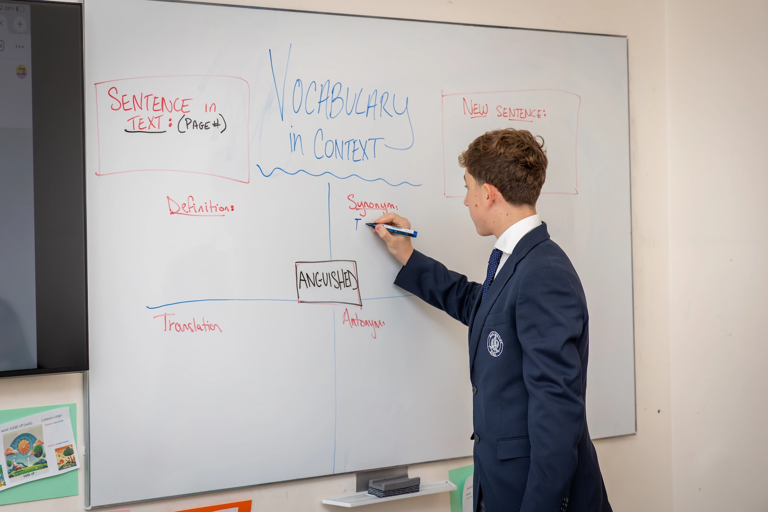 SENTENCE in
TEXT: (PAGE #)
VOCABULARY
in CONTEXT
NEW SENTENCE:
Definition:
Synonym:
T
ANGUISHED
Translation
Antonym: